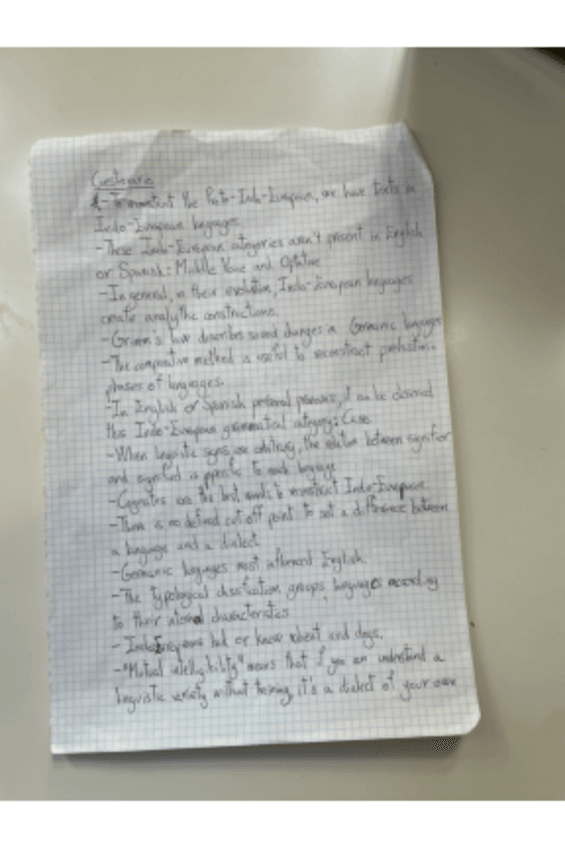 - To reconstruct the Proto-Indo-European, we have texts in
Indo-European languages.
- These Indo-European categories aren't present in English
or Spanish: Middle Voice and Optative
- In general, in their evolution, Indo-European languages
create analythic constructions.
- Grimm's law describes sound changes in Germanic languages
- The comparative method is useful to reconstruct prehistoric
phases of languages.
- In English or Spanish personal pronouns, it can be observed
this Indo-European grammatical category: Case
- When linguistic signs are arbitrary, the relation between signifier
and signified is specific to each language
- Cognates are the best words to reconstruct Indo-European.
- There is no defined cut off point to set a difference between
a language and a dialect
- Germanic languages most influenced English.
- The typological classification groups languages according
to their internal characteristics
- IndoEuropeans had or knew wheat and dogs.
- "Mutual intelligibility" means that if you can understand a
linguistic variety without training, it's a dialect of your own